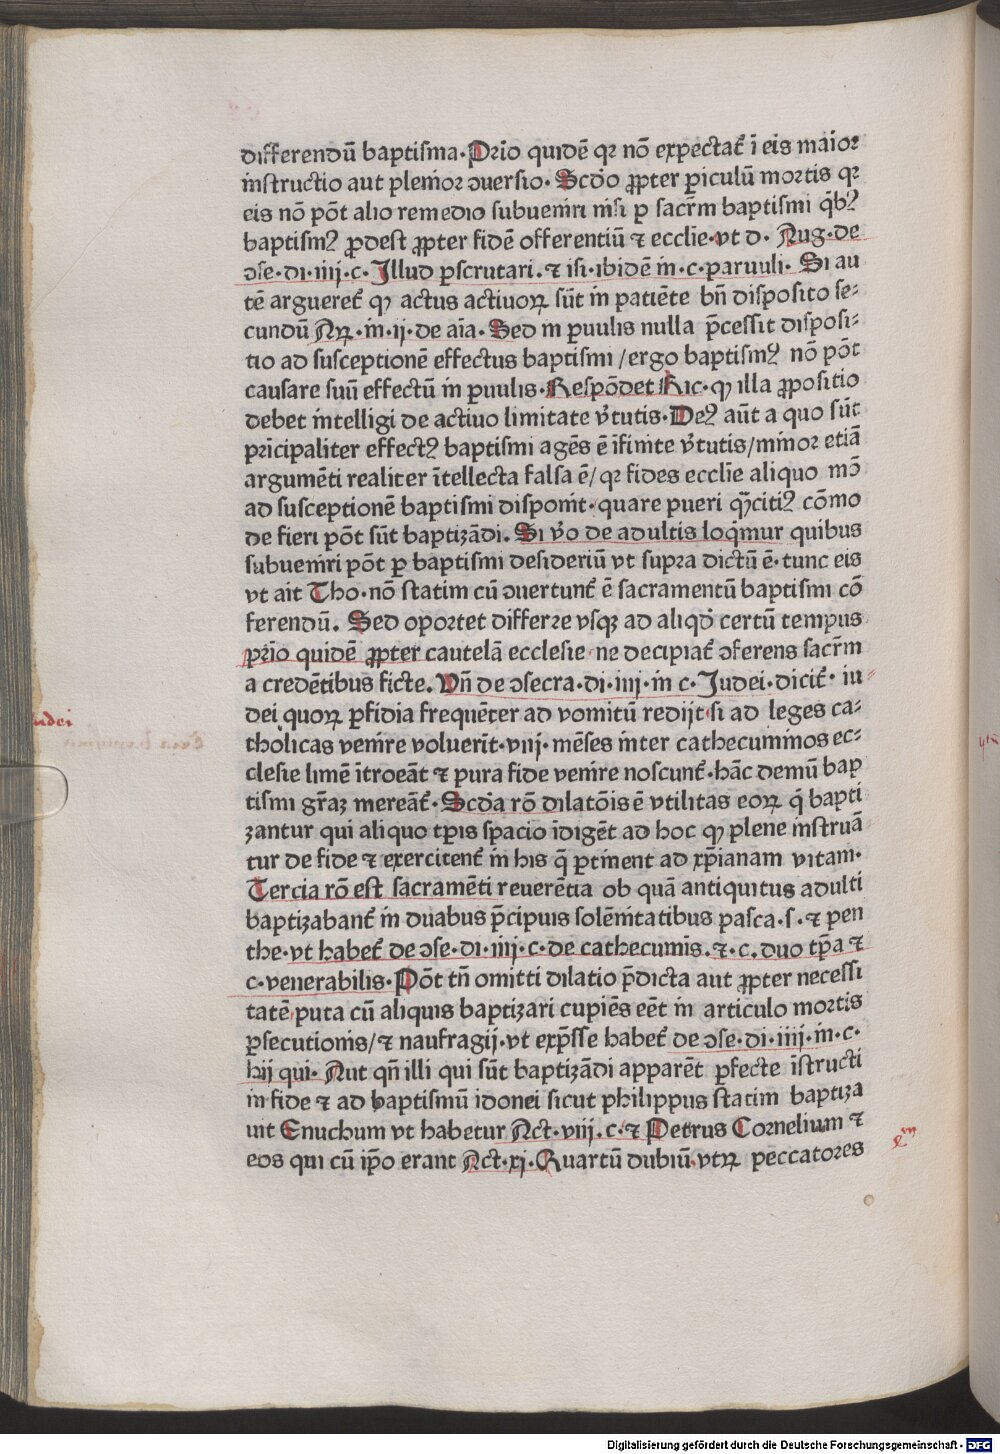 differendū baptisma. Prīo quidē qꝛ nō expectat᷑ ī eis maior
instructio aut plenior ꝯuersio. Scd̓o ꝓpter ꝑiculū mortis qꝛ
eis nō pōt alio remedio subueniri nisi ꝑ sacr̄m baptismi q̄bꝰ
baptismꝰ ꝓdest ꝓpter fidē offerentiū ⁊ ecclīe. vt d. Aug. de
ꝯse. di. iiij. c. Illud ꝑscrutari. ⁊ isi. ibidē in. c. paruuli. Si au
tē argueret᷑ ꝙ actus actiuoꝝ sūt in patiēte bn̄ disposito se⸗
cundū Aꝝ. in. ij. de aīa. Sed in ꝑuulis nulla p̄cessit disposi⸗
tio ad susceptionē effectus baptismi / ergo baptismꝰ nō pōt
causare suū effectū in ꝑuulis. Respōdet Ric. ꝙ illa ꝓpositio
debet intelligi de actiuo limitate v̓tutis. Deꝰ aūt a quo sūt
pri̅cipaliter effectꝰ baptismi agēs ē īfinite v̓tutis / minor etiā
argumēti realiter ītellecta falsa ē / qꝛ fides ecclīe aliquo mō
ad susceptionē baptismi disponit. quare pueri ꝙ̄citiꝰ cōmo
de fieri pōt sūt baptizādi. Si v̓o de adultis loq̄mur quibus
subueniri pōt ꝑ baptismi desideriū vt supra dictū ē. tunc eis
vt ait Tho. nō statim cū ꝯuertunt᷑ ē sacramentū baptismi cō
ferendū. Sed oportet differre vsqꝫ ad aliqd̓ certū tempus
prīo quidē ꝓpter cautelā ecclesie ne decipiat᷑ ꝯferens sacr̄m
a credētibus ficte. Vn̄ de ꝯsecra. di. iiij. in c. Judei. dicit᷑. iu⸗
dei quoꝝ ꝑfidia frequēter ad vomitū redijt si ad leges ca⸗
tholicas venire voluerīt. viij. mēses inter cathecuminos ec⸗
clesie limē ītroeāt ⁊ pura fide venire noscunt᷑. hāc demū bap
tismi gr̄aꝫ mereāt᷑. Scd̓a rō dilatōis ē vtilitas eoꝝ q̄ bapti
zantur qui aliquo tꝑis spacio īdigēt ad hoc ꝙ plene instruā
tur de fide ⁊ exercitent᷑ in his q̄ ꝑtinent ad xp̄ianam vitam.
Tercia rō est sacramēti reuerētia ob quā antiquitus adulti
baptizabant᷑ in duabus p̄cipuis solēnitatibus pasca. s. ⁊ pen
the. vt habet᷑ de ꝯse. di. iiij. c. de cathecumis. ⁊. c. duo tp̄a ⁊
c. venerabilis. Pōt tn̄ omitti dilatio p̄dicta aut ꝓpter necessi
tatē puta cū aliquis baptizari cupiēs eēt in articulo mortis
ꝑsecutionis / ⁊ naufragij. vt exp̄sse habet᷑ de ꝯse. di. iiij. in. c.
hij qui. Aut qn̄ illi qui sūt baptizādi apparēt ꝑfecte īstructi
in fide ⁊ ad baptismū idonei sicut philippus statim baptiza
uit Enuchum vt habetur Act. viij. c. ⁊ Petrus Cornelium ⁊
eos qui cū ip̄o erant Act. xj. Quartū dubiū. vtꝝ peccatores
udei
Digitalisierung gefördert durch die Deutsche Forschungsgemeinschaft - DFG